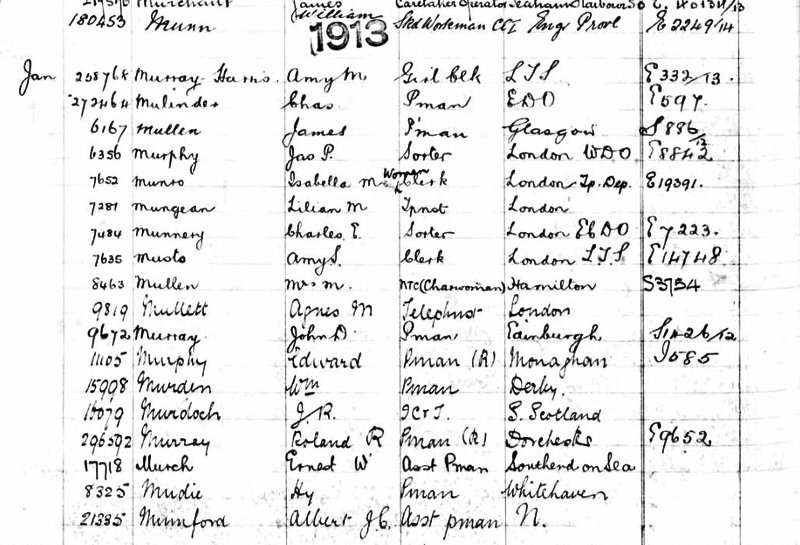 James
180453 Munn William Skd Workman CCI Engr Provl E 2249/14
1913
Jan 258768 Murray-Harris. Amy M Girl Clk LTS E 332/13.
272464 Mulinder Chas Pman EDO E597.
6167 Mullen James P'man Glasgow S886/12
6356 Murphy Jas P. Sorter London WDO E8842
7652 Munro Isabella M Woman Clerk London Tp. Dep. E19391.
7281 Mungean Lilian M Tpnst London
7484 Munnery Charles E. Sorter London ECDO E7223.
7635 Musto Amy S. Clerk London LTS E14748.
8463 Mullen Mrs M. NTC (Charwoman) Hamilton S3754
9819 Mullett Agnes M Telephnst London
9672 Murray John D. Pman Edinburgh S1426/12
11105 Murphy Edward Pman (R) Monaghan I585
15998 Murden Wm Pman Derby.
Murdoch J. R. SC&T. S. Scotland
296592 Murray Roland R Pman (R) Dorchester E9652
17718 Murch Ernest W Asst Pman Southend on Sea
8325 Mudie Hy Pman Whitehaven
21385 Mumford Albert J C. Asst pman N.